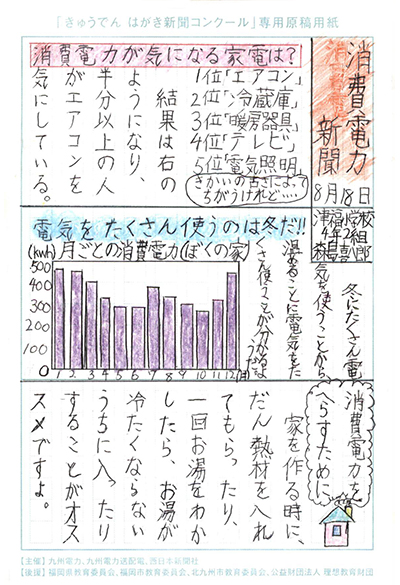 「きゅうでん はがき新聞コンクール」専用原稿用紙
消費電力
新聞
8月18日
津福小学校
消費電力が気になる家電は?
1位「エアコン」
2位「冷蔵庫」
3位「暖房器具」
4位「テレビ」
5位「電気照明」
きかいの古さによって
ちがうけれど…
結果は右の
ようになり、
半分以上の人
がエアコンを
気にしている。
電気をたくさん使うのは冬だ!!
(kwh)月ごとの消費電力(ぼくの家)
500
400
300
200
100
0
1 2 3 4 5 6 7 8 9 10 11 12(月)
冬にたくさん電
気を使うことから、
温めることに電気をた
くさん使うことが分かる
消費電力を
へらすために
家を作る時に、
だん熱材を入れ
てもらったり、
一回お湯をわか
したら、お湯が
冷たくならない
うちに入ったり
することがオス
スメですよ。
【主催】九州電力、九州電力送配電、西日本新聞社
【後援】福岡県教育委員会、福岡市教育委員会、北九州市教育委員会、公益財団法人 理想教育財団